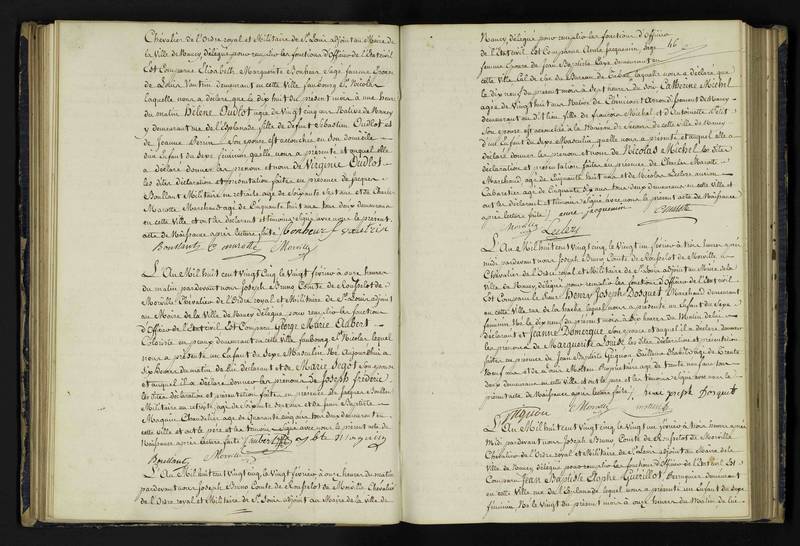 Chevalier de l'Ordre royal et Militaire de St Louis adjoint au Maire de
la Ville de Nancy, délégué pour remplir les fonctions d'Officier de l'Etat civil
Est Comparue Elisabeth Marguerite Bonheur Sage femme Epouse
de Louis Vautrin demeurant en cette Ville faubourg St Nicolas
laquelle nous a déclaré que le dix huit du présent mois à une heure
du matin Hélène Oudlot agée de Vingt cinq ans Native de Nancy
y demeurant rue de l'Esplanade fille de défunt Sébastien Oudlot et
de Jeanne son épouse est accouchée en son domicile
d'un Enfant du Sexe féminin quelle nous a présenté et auquel elle
a déclaré donner les prénom et nom de Virginie Oudlot
les dites déclaration et présentation faites en présence de Jacques
Boullant Militaire en retraite agé de Soixante Sept ans et de Charles
Marotte Marchand agé de Cinquante huit ans tous deux demeurans
en cette Ville et ont les déclarant et témoins signé avec nous le présent
acte de Naissance après lecture faite bonheur f vautrin
Boullant C marotte Morville
L'An Mil huit cent Vingt cinq le Vingt février à onze heures
du matin pardevant nous Joseph Bruno Comte de
Morville Chevalier de l'Ordre royal et Militaire de St Louis adjoint
au Maire de la Ville de Nancy délégué, pour remplir les fonctions
d'Officier de l'Etat civil Est Comparu George Marie Aubert
Coloriste en peaux demeurant en cette Ville faubourg St Nicolas lequel
nous a présenté un Enfant du Sexe Masculin Né Aujourd'hui à
Six heures du matin de lui déclarant et de Marie Segot Son épouse
et auquel il a déclaré donner les prénoms de Joseph frédéric
les dites déclaration et présentation faites en présence De Jacques Boullant
Militaire en retraite agé de Soixante Sept ans et de Jean Baptiste
Maguin Chaudelier agé de Quarante cinq ans tous deux demeurans en
cette Ville et ont le père et les témoins Signé avec nous le présent acte de
Naissance après lecture faite Aubert
Boullant Morville
L'An Mil huit cent Vingt cinq le Vingt février à onze heures du matin
pardevant nous Joseph Bruno Comte de Morville Chevalier
de l'Ordre royal et Militaire de St Louis adjoint au Maire de la Ville de
Nancy délégué pour remplir les fonctions d'Officier
de l'Etat civil Est Comparue Anne Jacquemin, Sage 46
femme Epouse de Jean Baptiste demeurant en
cette Ville laquelle nous a déclaré que
le dix neuf du présent mois à Sept heures du soir Catherine Michel
agée de Vingt huit ans Native de arrondissement de Nancy
demeurant en dite Ville de François Michel et d'Antoinette
Son épouse est accouchée à la Maison de Secours de cette Ville de Nancy
d'un Enfant du Sexe Masculin quelle nous a présenté et auquel elle a
déclaré donner les prénom et nom de Nicolas Michel les dites
déclaration et présentation faites en présence de Charles Marotte
Marchand agé de Cinquante huit ans et de Nicolas Leclerc ancien
Cabaretier agé de Cinquante dix ans tous deux demeurans en cette Ville et
ont les déclarant et témoins Signé avec nous le présent acte de Naissance
après lecture faite anne jacquemin
Morville Leclerc
L'An Mil huit cent Vingt cinq, le Vingt février à trois heures après
midi pardevant nous Joseph Bruno Comte de Morville
Chevalier de l'Ordre royal et Militaire de St Louis adjoint au Maire de la
Ville de Nancy, délégué pour remplir les fonctions d'Officier de l'Etat civil
Est Comparu le Sieur Henry Joseph Dosquet Marchand demeurant
en cette Ville rue de la hache lequel nous a présenté un Enfant du Sexe
féminin Né le dix neuf du présent mois à dix heures du Matin de lui
déclarant et Jeanne Démerque Son épouse et auquel il a déclaré donner
les prénoms de Marguerite Louise les dites déclaration et présentation
faites en présence de Jean Baptiste agé de Trente
Neuf ans et de Propriétaire agé de
deux demeurans en cette Ville et ont le père et les témoins Signé avec nous le
présent acte de Naissance après lecture faite henri joseph Dosquet
Morville
L'An Mil huit cent Vingt cinq, le Vingt février à trois heures après
midi pardevant nous Joseph Bruno Comte de Morville
Chevalier de l'Ordre royal et Militaire de St Louis adjoint au Maire de la
Ville de Nancy délégué pour remplir les fonctions d'Officier de l'Etat civil Est
Comparu Jean Baptiste Elophe Guérillot demeurant
en cette Ville rue de l'Esplanade lequel nous a présenté un Enfant du Sexe
féminin, Né le Vingt du présent mois à onze heures du Matin de lui